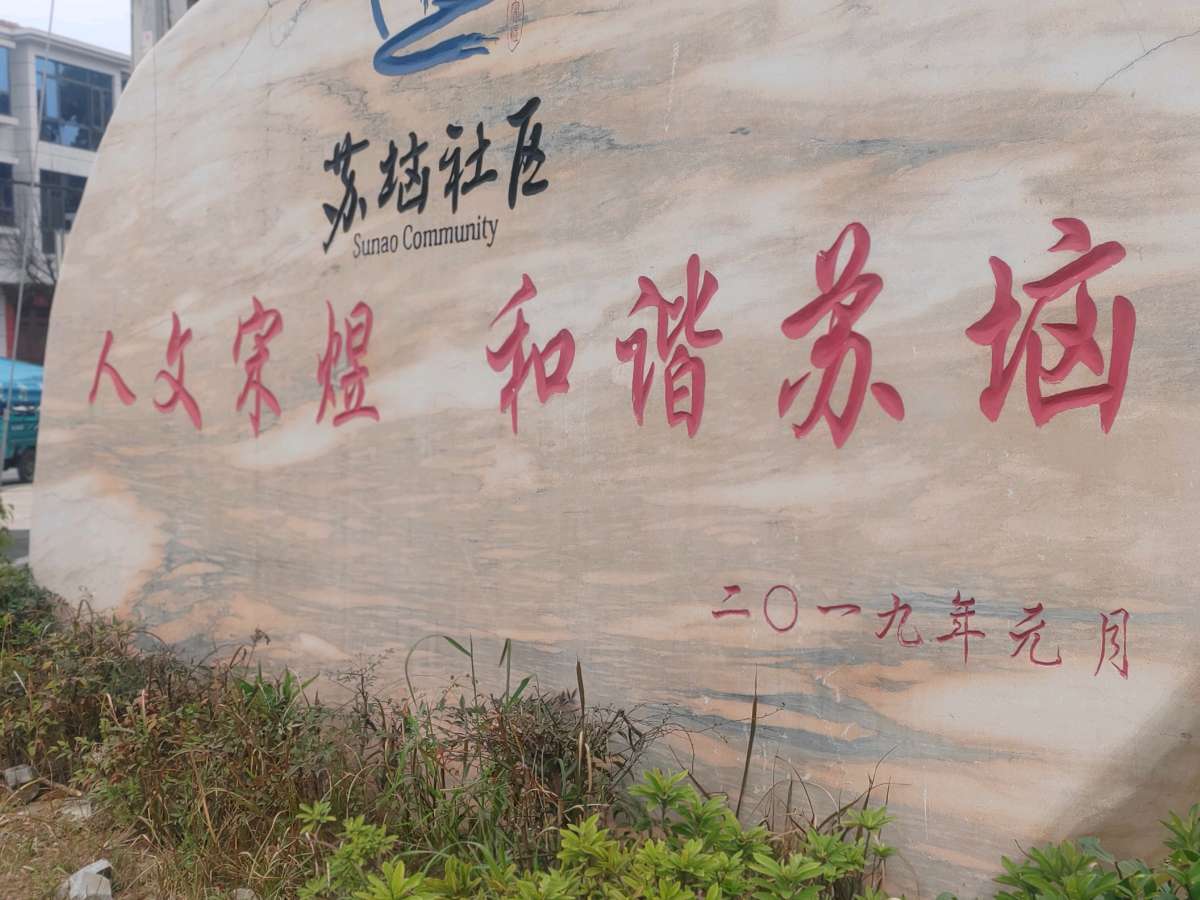 苏垴社区
Sunao Community
人文宋煜 和谐苏垴
二〇一九年元月